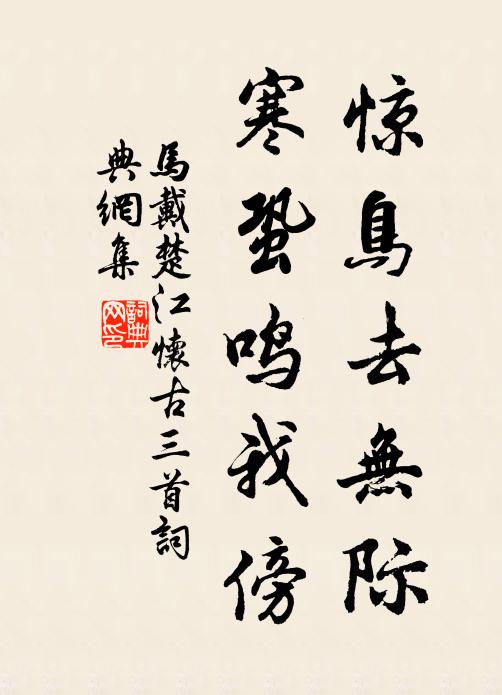 惊鳥去無际
寒蛩鸣我傍
馬戴楚江懷古三首詞
典網集
詞典网印